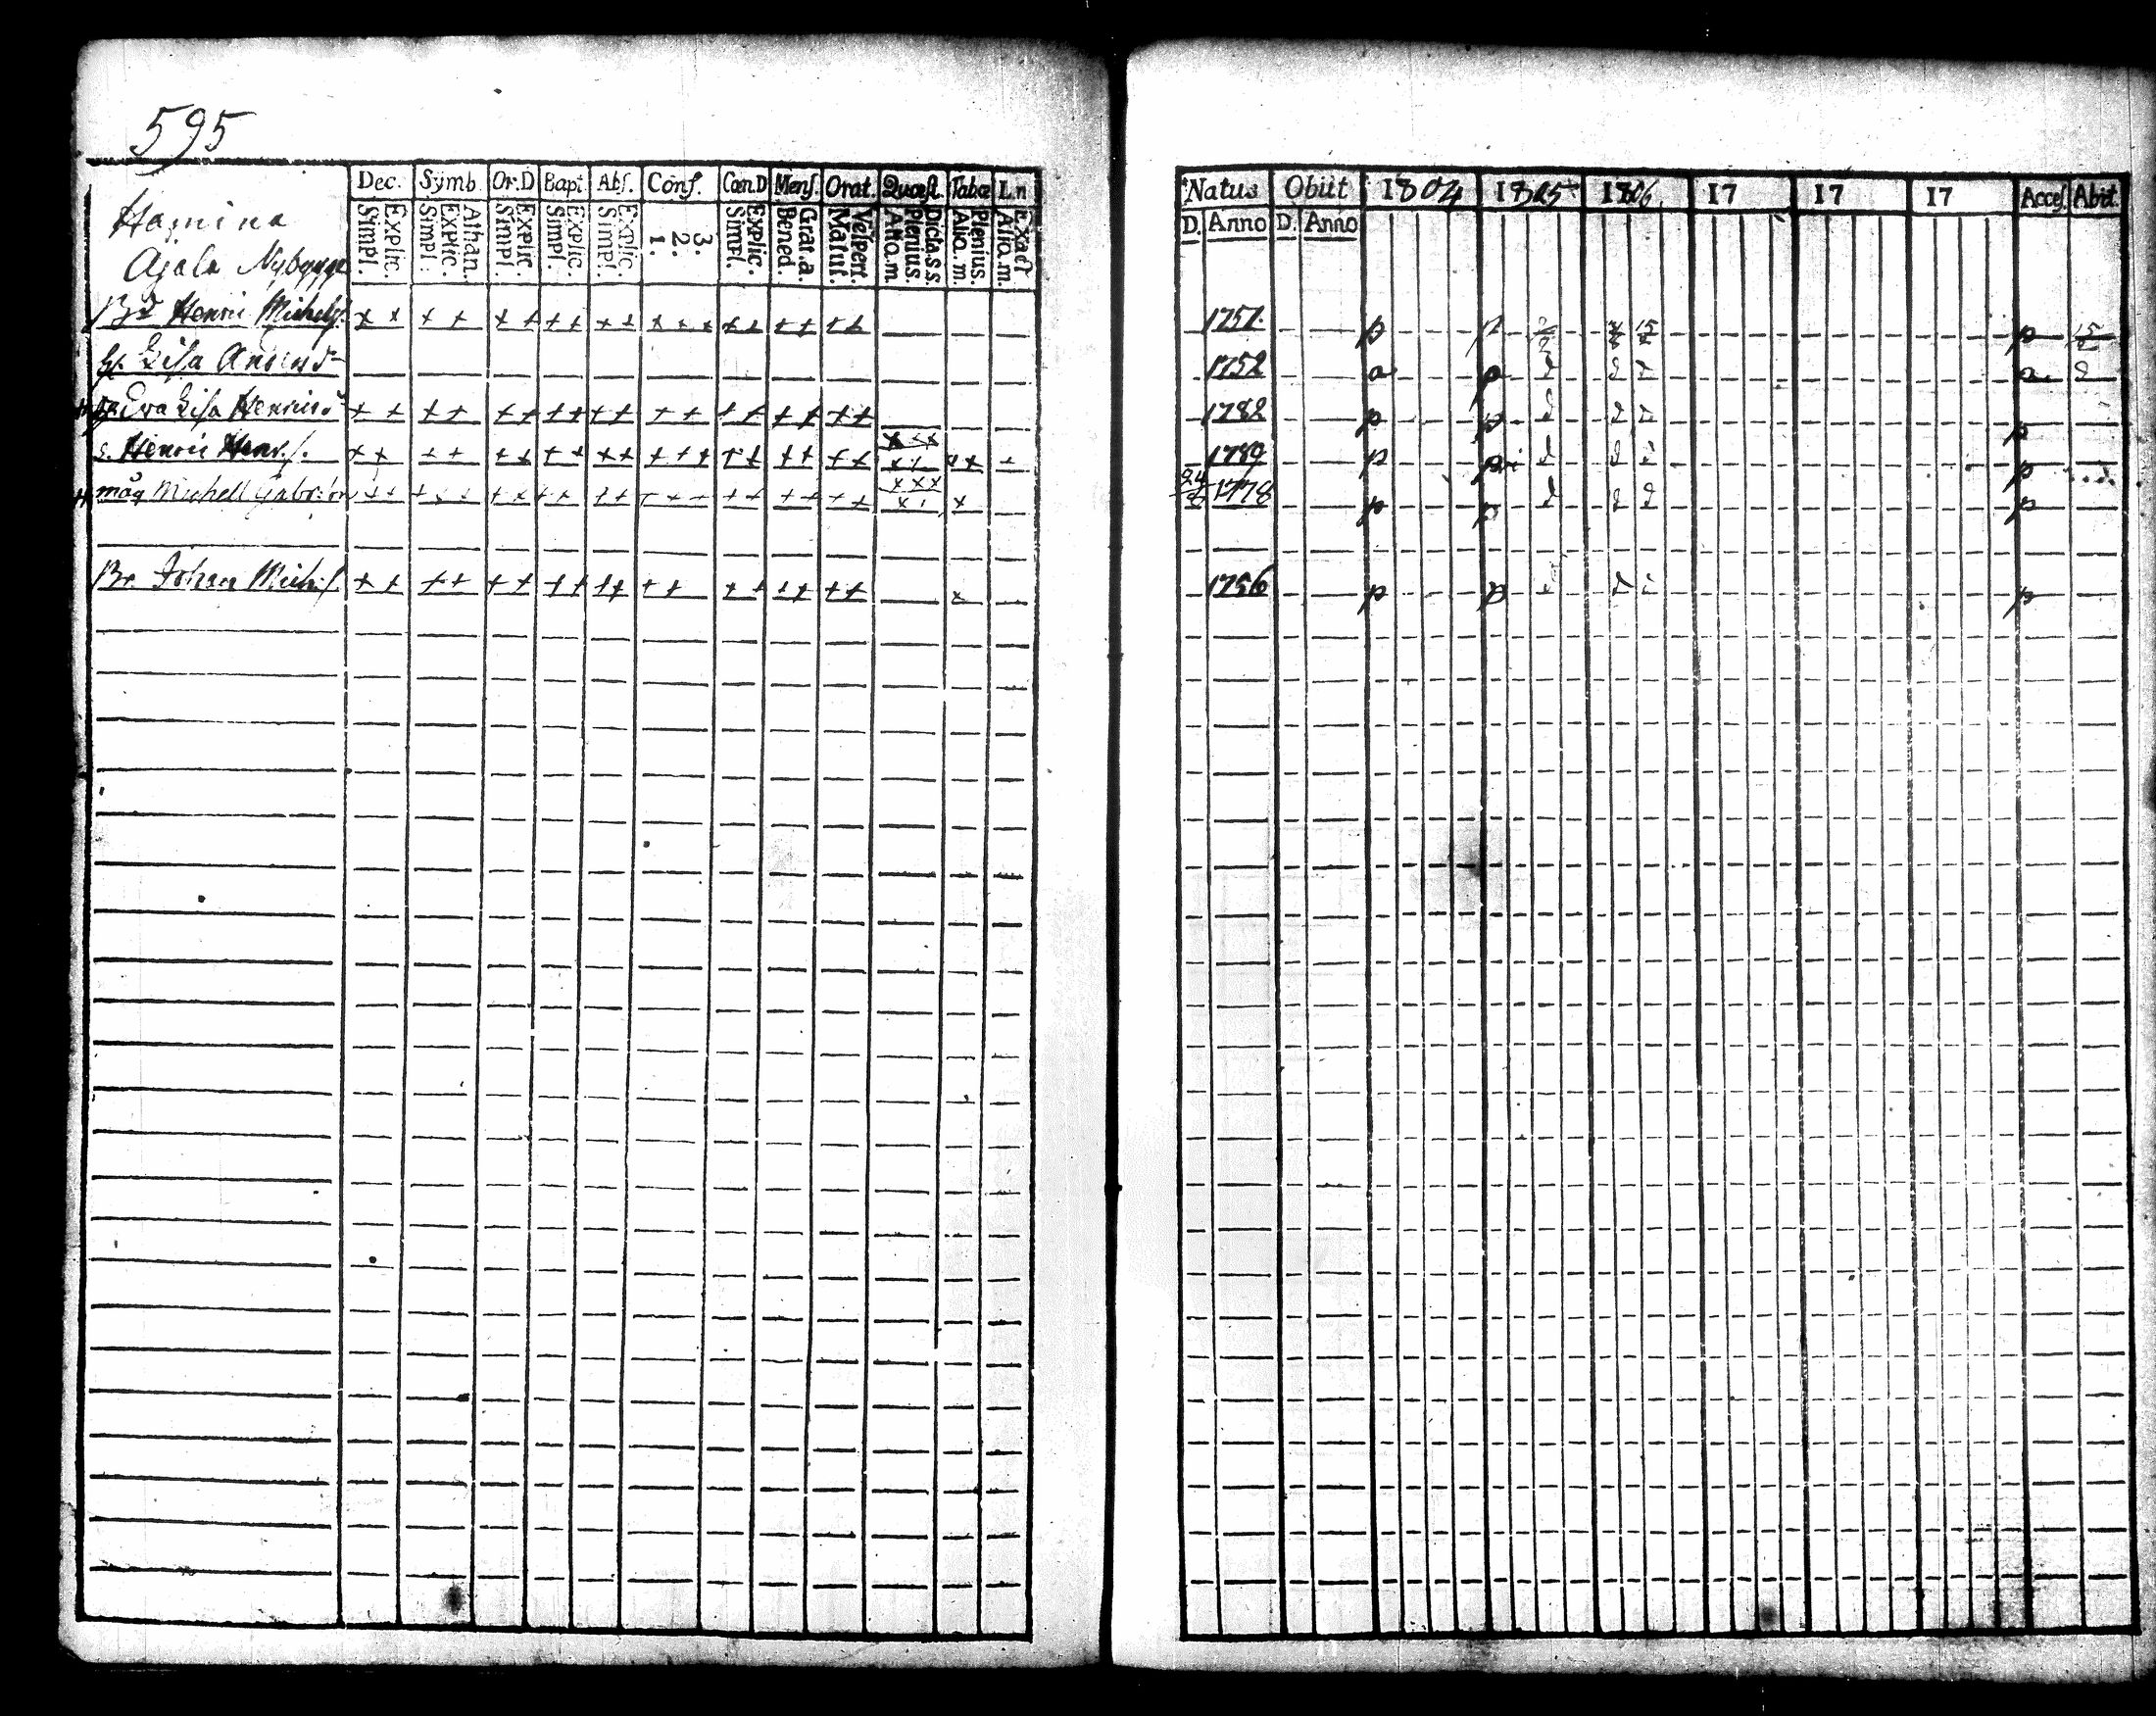 595
Dec. Symb. Or.D Bapt. Abs. Conf. Cœn.D Mens. Orat. Quæst. Tabœ L.n
Hamina
Simpl. Explic. Simpl. Explic. Athan. Simpl. Explic. Simpl. Explic. Simpl. Explic. 1. 2. 3. Simpl. Explic. Bened. Grat.a. Matut. Vespert. Alio.m. Plenius. Dicta.s.s. Alio.m. Plenius. Alio.m. Exact
Ajala Nybygge
Bd Henric Michelſ.
h. Lisa Andersd
Eva Lisa Henricsd
s. Henric Henr.ſ.
måg Michell Gabr:son
Br. Johan Mich.ſ.
Natus Obiit 1804 1805 1806 17 17 17 Acceſ. Abit.
D. Anno D. Anno
1751. p p p
1752 a p a
1782 p p p
1789 p p p
24 1778 p p p
1756 p p p